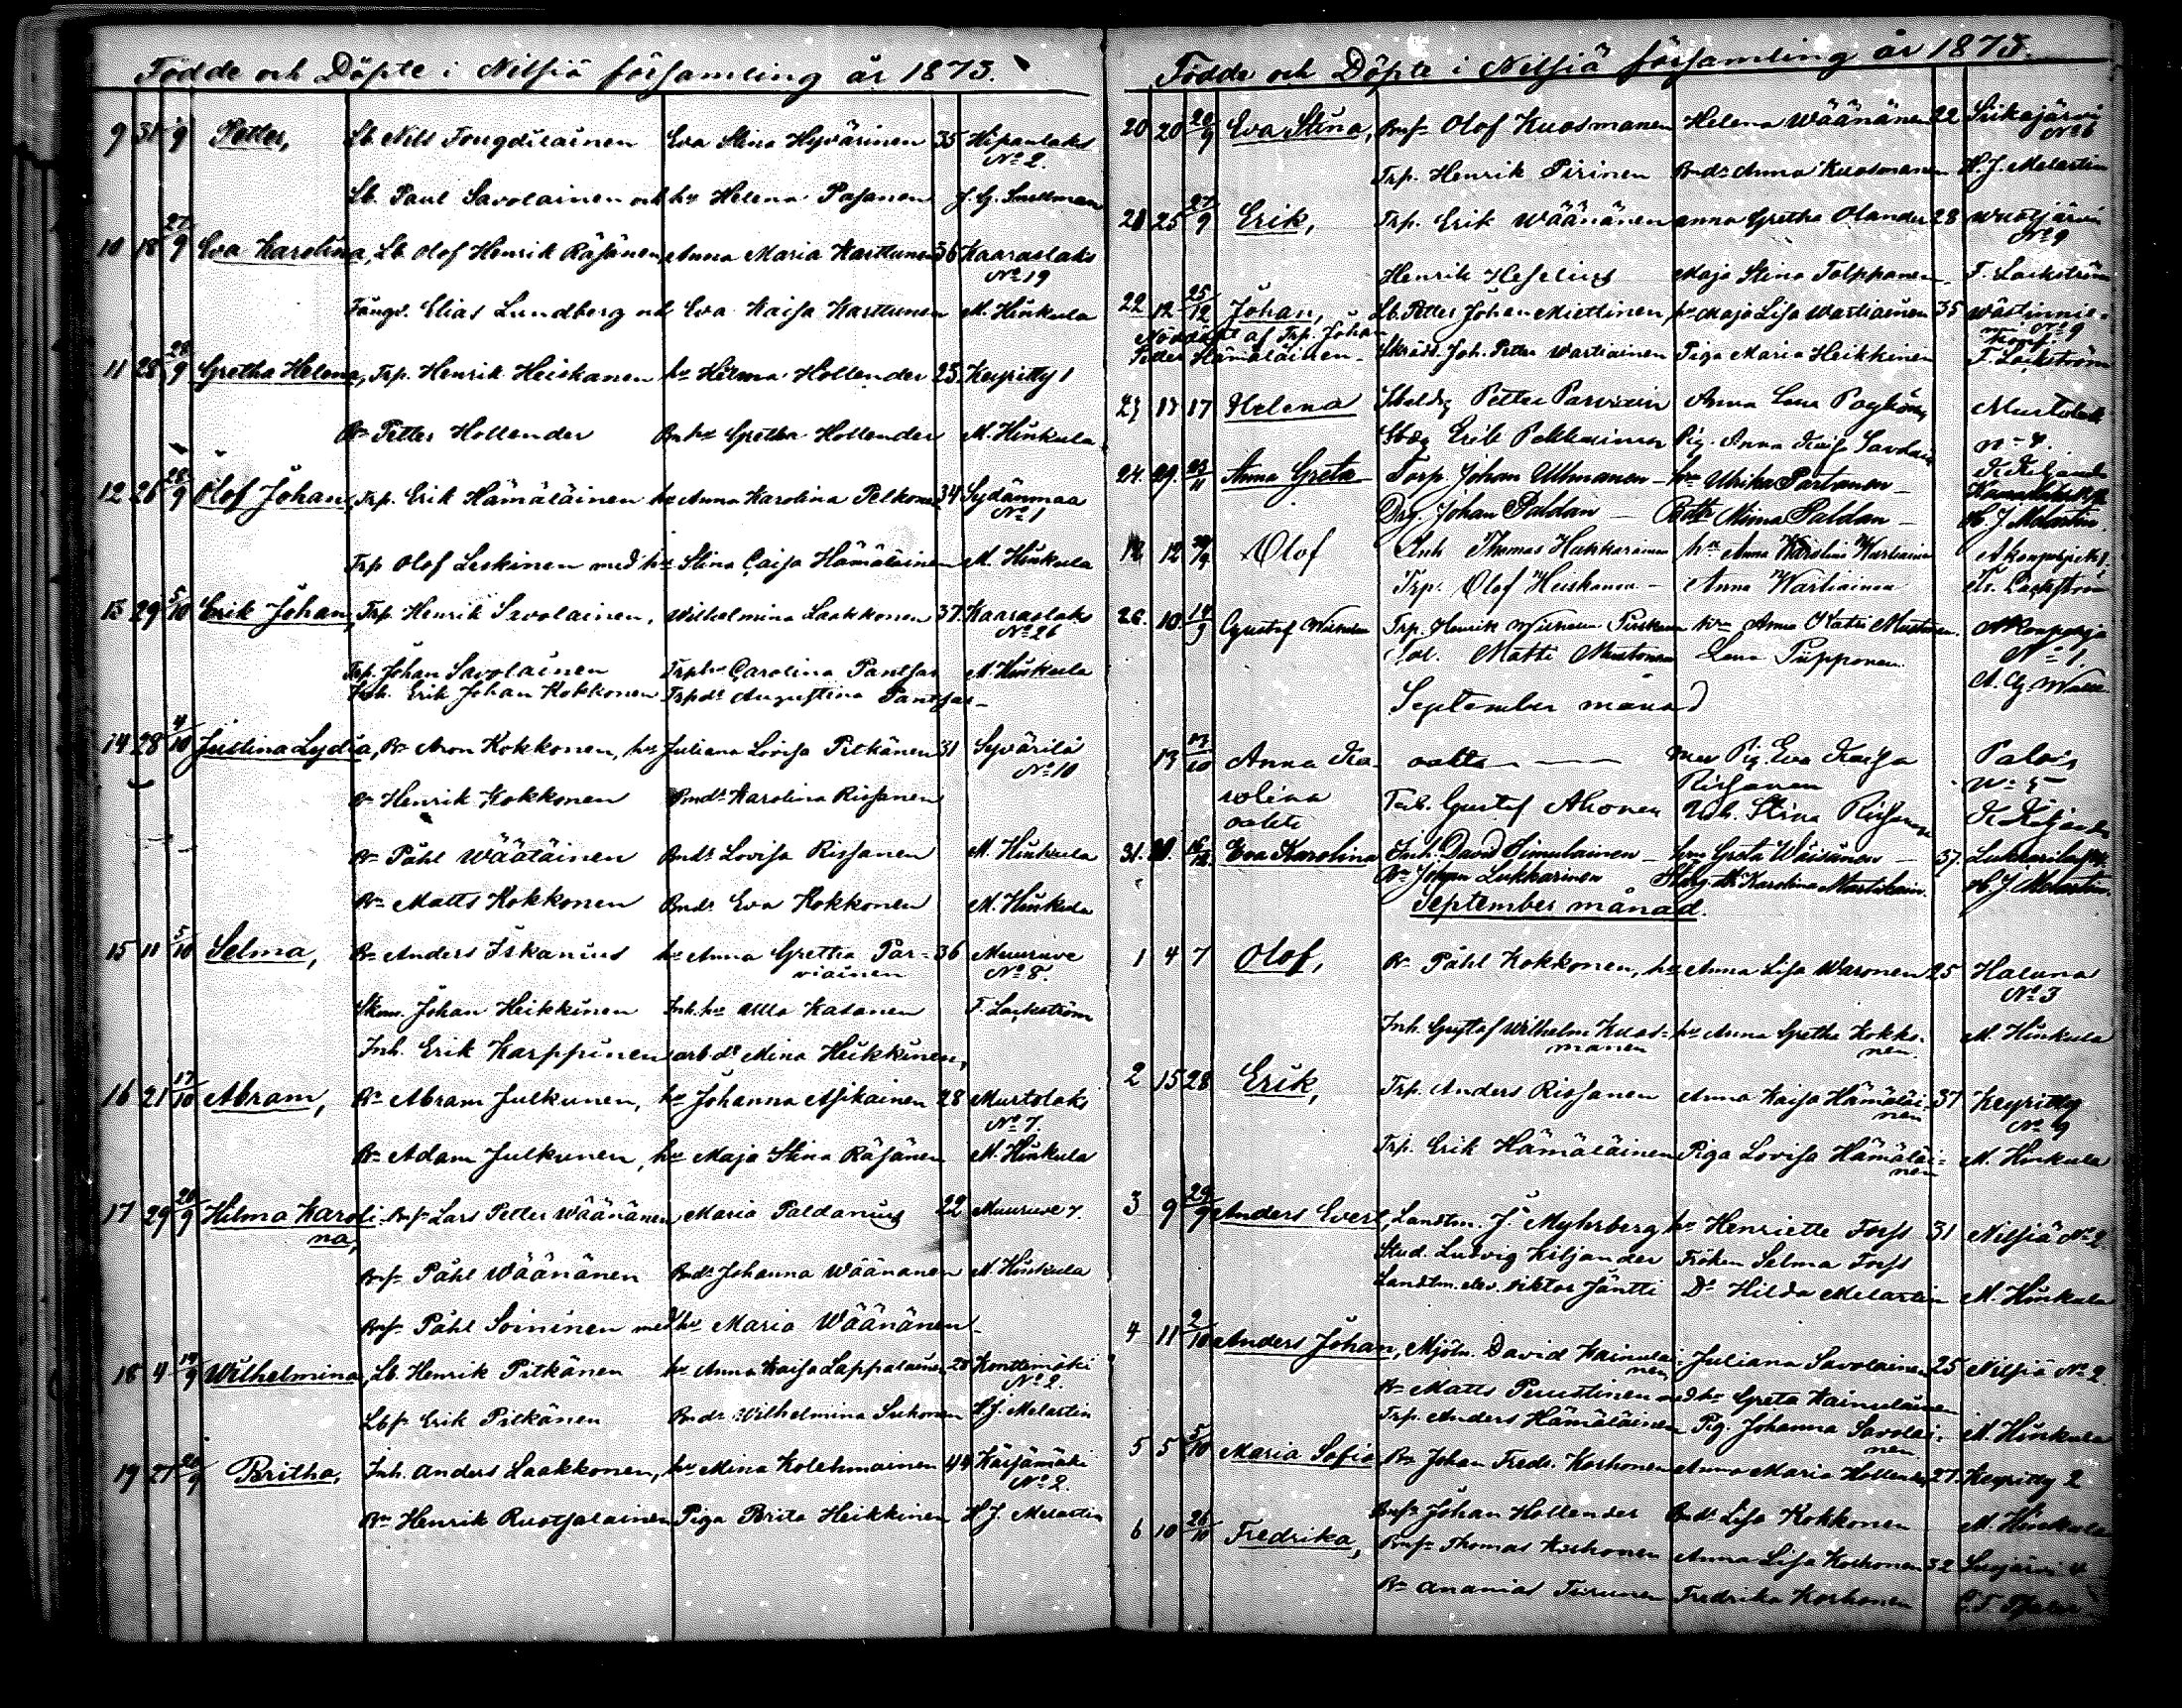 Födde och Döpte i Nilsiä församling år 1873.
9 31 9 Petter, Lb. Nils Tougdilainen Eva Stina Hyvärinen 35 Hipanlaks
No 2.
Lb. Paul Savolainen och hu Helena Pasanen J. G. Snellman
10 18 27/9 Eva Karolina, Lb. Olof Henrik Räsänen, Anna Maria Karttunen 36 Kaaraslaks
No 19
Elias Lundberg och Eva Kaisa Karttunen M. Hinkula
11 28 28/9 Gretha Helena, Trp. Henrik Heiskanen hu Helena Hollender 23. Keyritty 1
Bn Petter Hollender Bn hu Gretha Hollender M. Hinkula
12 26 28/9 Olof Johan, Trp. Erik Hämäläinen hu Anna Karolina Pelkonen 34 Sydänmaa
No 1
Trp Olof Leskinen med hu Stina Caisa Hämäläinen M. Hinkula
13 29 5/10 Erik Johan, Trp. Henrik Savolainen, Wilhelmina Laakkonen 37. Kaaraslaks
No 26
Trp. Johan Savolainen Trphu Carolina Pantsar M. Hinkula
Inh. Erik Johan Kokkonen Trpdr Augustina Pantsar
14 28 4/10 Justina Lydia, Bn Aron Kokkonen, hu Juliana Lovisa Pitkänen 31 Syvärilä
No 10
Bn Henrik Kokkonen Bndr Karolina Rissanen
Bn Påhl Wäätäinen Bndr Lovisa Rissanen M. Hinkula
Bn Matts Kokkonen Bndr Eva Kokkonen M. Hinkula
15 11 5/10 Selma, Bn Anders Iskanius hu Anna Gretha Par- 36 Muuruve
viainen No 8.
Johan Heikkinen Inh. hu Ulla Kasanen F. Lackström
Inh. Erik Karppinen arb dr Mina Heikkinen,
16 21 17/10 Abram, Bn Abram Julkunen, hu Johanna Asikainen 28 Murtolaks
No 7.
Bn Adam Julkunen, hu Maja Stina Räsänen M. Hinkula
17 29 20/9 Hilma Karoli- Bnsn Lars Petter Wäänänen Maria Paldanius 22 Muuruve 7.
na,
Bnsn Påhl Wäänänen Bndr Johanna Wäänänen M. Hinkula
Bnsn Påhl Soininen med hu Maria Wäänänen
18 4 14/9 Wilhelmina, Lb. Henrik Pitkänen hu Anna Kaisa Lappalainen 28 Konttimäki
No 2.
Lbsn Erik Pitkänen Bndr Wilhelmina Suhonen H. J. Melartin
19 27 28/9 Britha, Inh. Anders Laakkonen, hu Mina Kolehmainen 44 Kärjämäki
No 2.
Bn Henrik Ruotsalainen Piga Brita Heikkinen H. J. Melartin
Födde och Döpte i Nilsiä församling år 1873.
20 20 28/9 Eva Stina, Bnsn Olof Kuosmanen Helena Wäänänen 22 Siikajärvi
No 6
Trp. Henrik Pirinen Bndr Anna Kuosmanen H. J. Melartin
21 25 27/9 Erik, Trp. Erik Wäänänen Anna Gretha Olander 28 Wuotjärvi
No 9
Henrik Heselius Maja Stina Tolppanen F. Lackström
22 12 25/12 Johan, Lb. Petter Johan Miettinen, hu Maja Lisa Wartiainen 35 Wästinnie-
Nöddöpt af Trp. Johan mi No 9
Petter Hämäläinen. Skrädd. Joh. Petter Wartiainen Piga Maria Heikkinen F. Lackström
23 17 17 Helena Petter Parviain Anna Lena Murtolak
Erik Pekkarinen Pig. Anna Kaisa Savolain
24. 29. 23/11 Anna Greta Torp. Johan Ulmanen hu Ulrika Partanen K Kiljand
Drg. Johan Paldan Mima Paldan H. J. Melartin
12 Olof Inh Thomas Hukkarinen hu Anna Karolin Wartiainen Akonpohja No 1.
Trp. Olof Heiskanen Anna Wartiainen Fr. Lackström
26. 10. 14/9 Gustaf Wilhelm Trp. Henrik Wilhelm hu Anna Mustonen. Akonpohja
Matti Mustonen Lena Piipponen No 1.
September månad
13 Anna Ka- oäkta med Pig Eva Kaisa Palois
rolina Rissanen No 5
oäkta Gustaf Ahonen Stina Rissanen K Kiljander
31. Eva Karolina Inh. David Simulainen hu Greta Wäisänen 37.
Bn Johan Lukkarinen Karolina Martikain. H. J. Melartin.
September månad.
1 4 7 Olof, Bn Påhl Kokkonen, hu Anna Lisa Waronen 25 Haluna
No 3
Inh. Gustaf Wilhelm Kuos- hu Anna Gretha Kokko- M. Hinkula
manen nen.
2 15 28 Erik, Trp. Anders Rissanen Anna Kaisa Hämäläi- 37 Keyritty
nen No 9
Trp. Erik Hämäläinen Piga Lovisa Hämäläi- M. Hinkula
nen
3 9 29/9 Anders Evert, Landtm. J. Myhrberg hu Henriette Forss 31 Nilsiä No 2.
Stud. Ludvig Kiljander Fröken Selma Forss
Landtm. elev. Viktor Jäntti Dr Hilda Melartin M. Hinkula
4 11 2/10 Anders Johan, Mjöln. David Kainulai- Juliana Savolainen 25 Nilsiä No 2.
nen
Bn Matts Puustinen med hu Greta Kainulainen
Trp. Anders Hämäläinen Pig. Johanna Savolai- M. Hinkula
nen
5 5 5/10 Maria Sofia Bn Johan Fredr. Korhonen Anna Maria Hollender 27. Keyritty 2
Bnsn Johan Hollender Bndr Lisa Kokkonen M. Hinkula
6 10 26/10 Fredrika, Bnsn Thomas Korhonen Anna Lisa Korhonen 32
Bn Ananias Tirunen Fredrika Korhonen